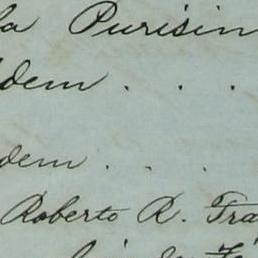 la Purisin
dem . . .
dem . . .
Roberto R. Tra